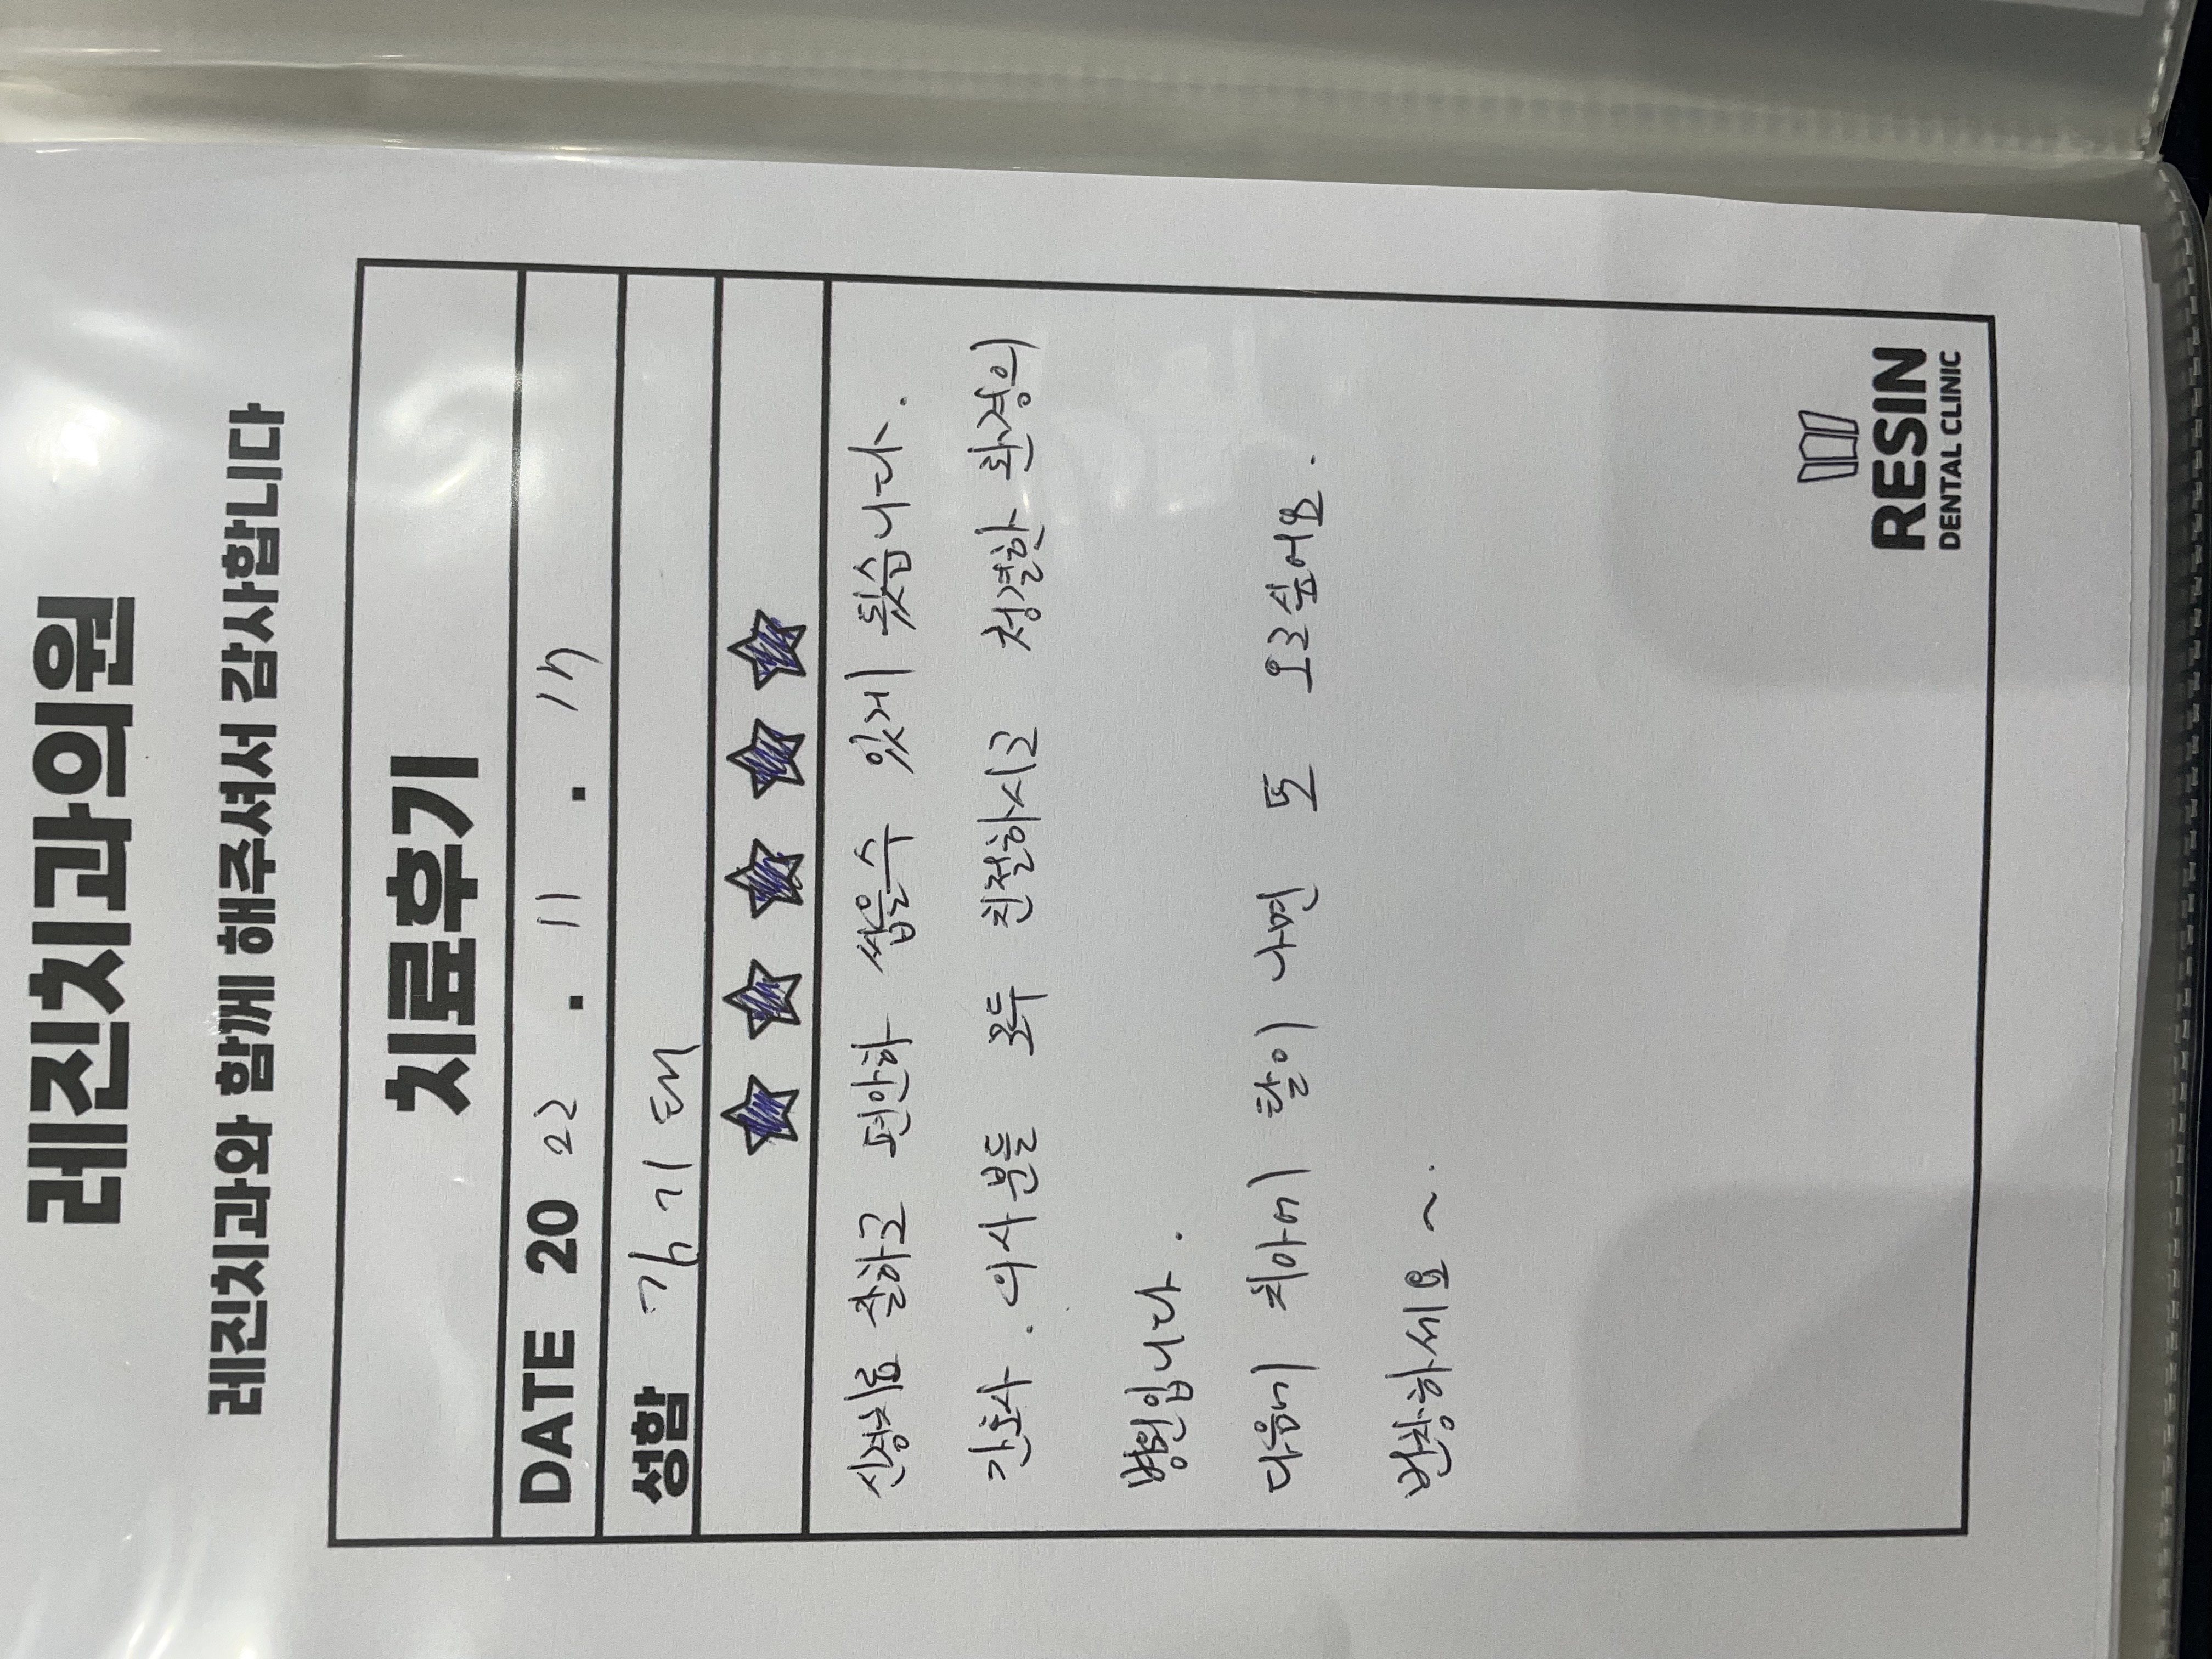 레진치과의원
레진치과와 함께 해주셔서 감사합니다
치료후기
DATE 20 22 . 11 . 17
성함 김기태
신경치료 잘하고 편안하 씹을수 있게 됐습니다.
간호사. 의사분들 모두 친절하시고 청결한 환경의
병원입니다.
다음에 치아에 탈이 나면 또 오고싶어요.
번창하세요~.
RESIN
DENTAL CLINIC